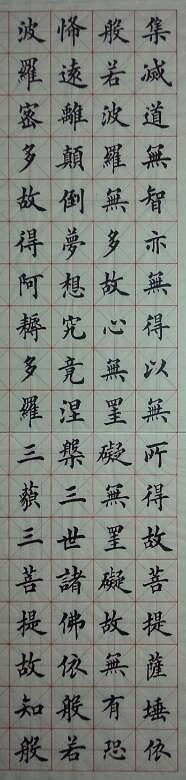 集滅道無智亦無得以無所得故菩提薩埵依
般若波羅無多故心無罣礙無罣礙故無有恐
怖遠離顛倒夢想究竟涅槃三世諸佛依般若
波羅密多故得阿耨多羅三藐三菩提故知般